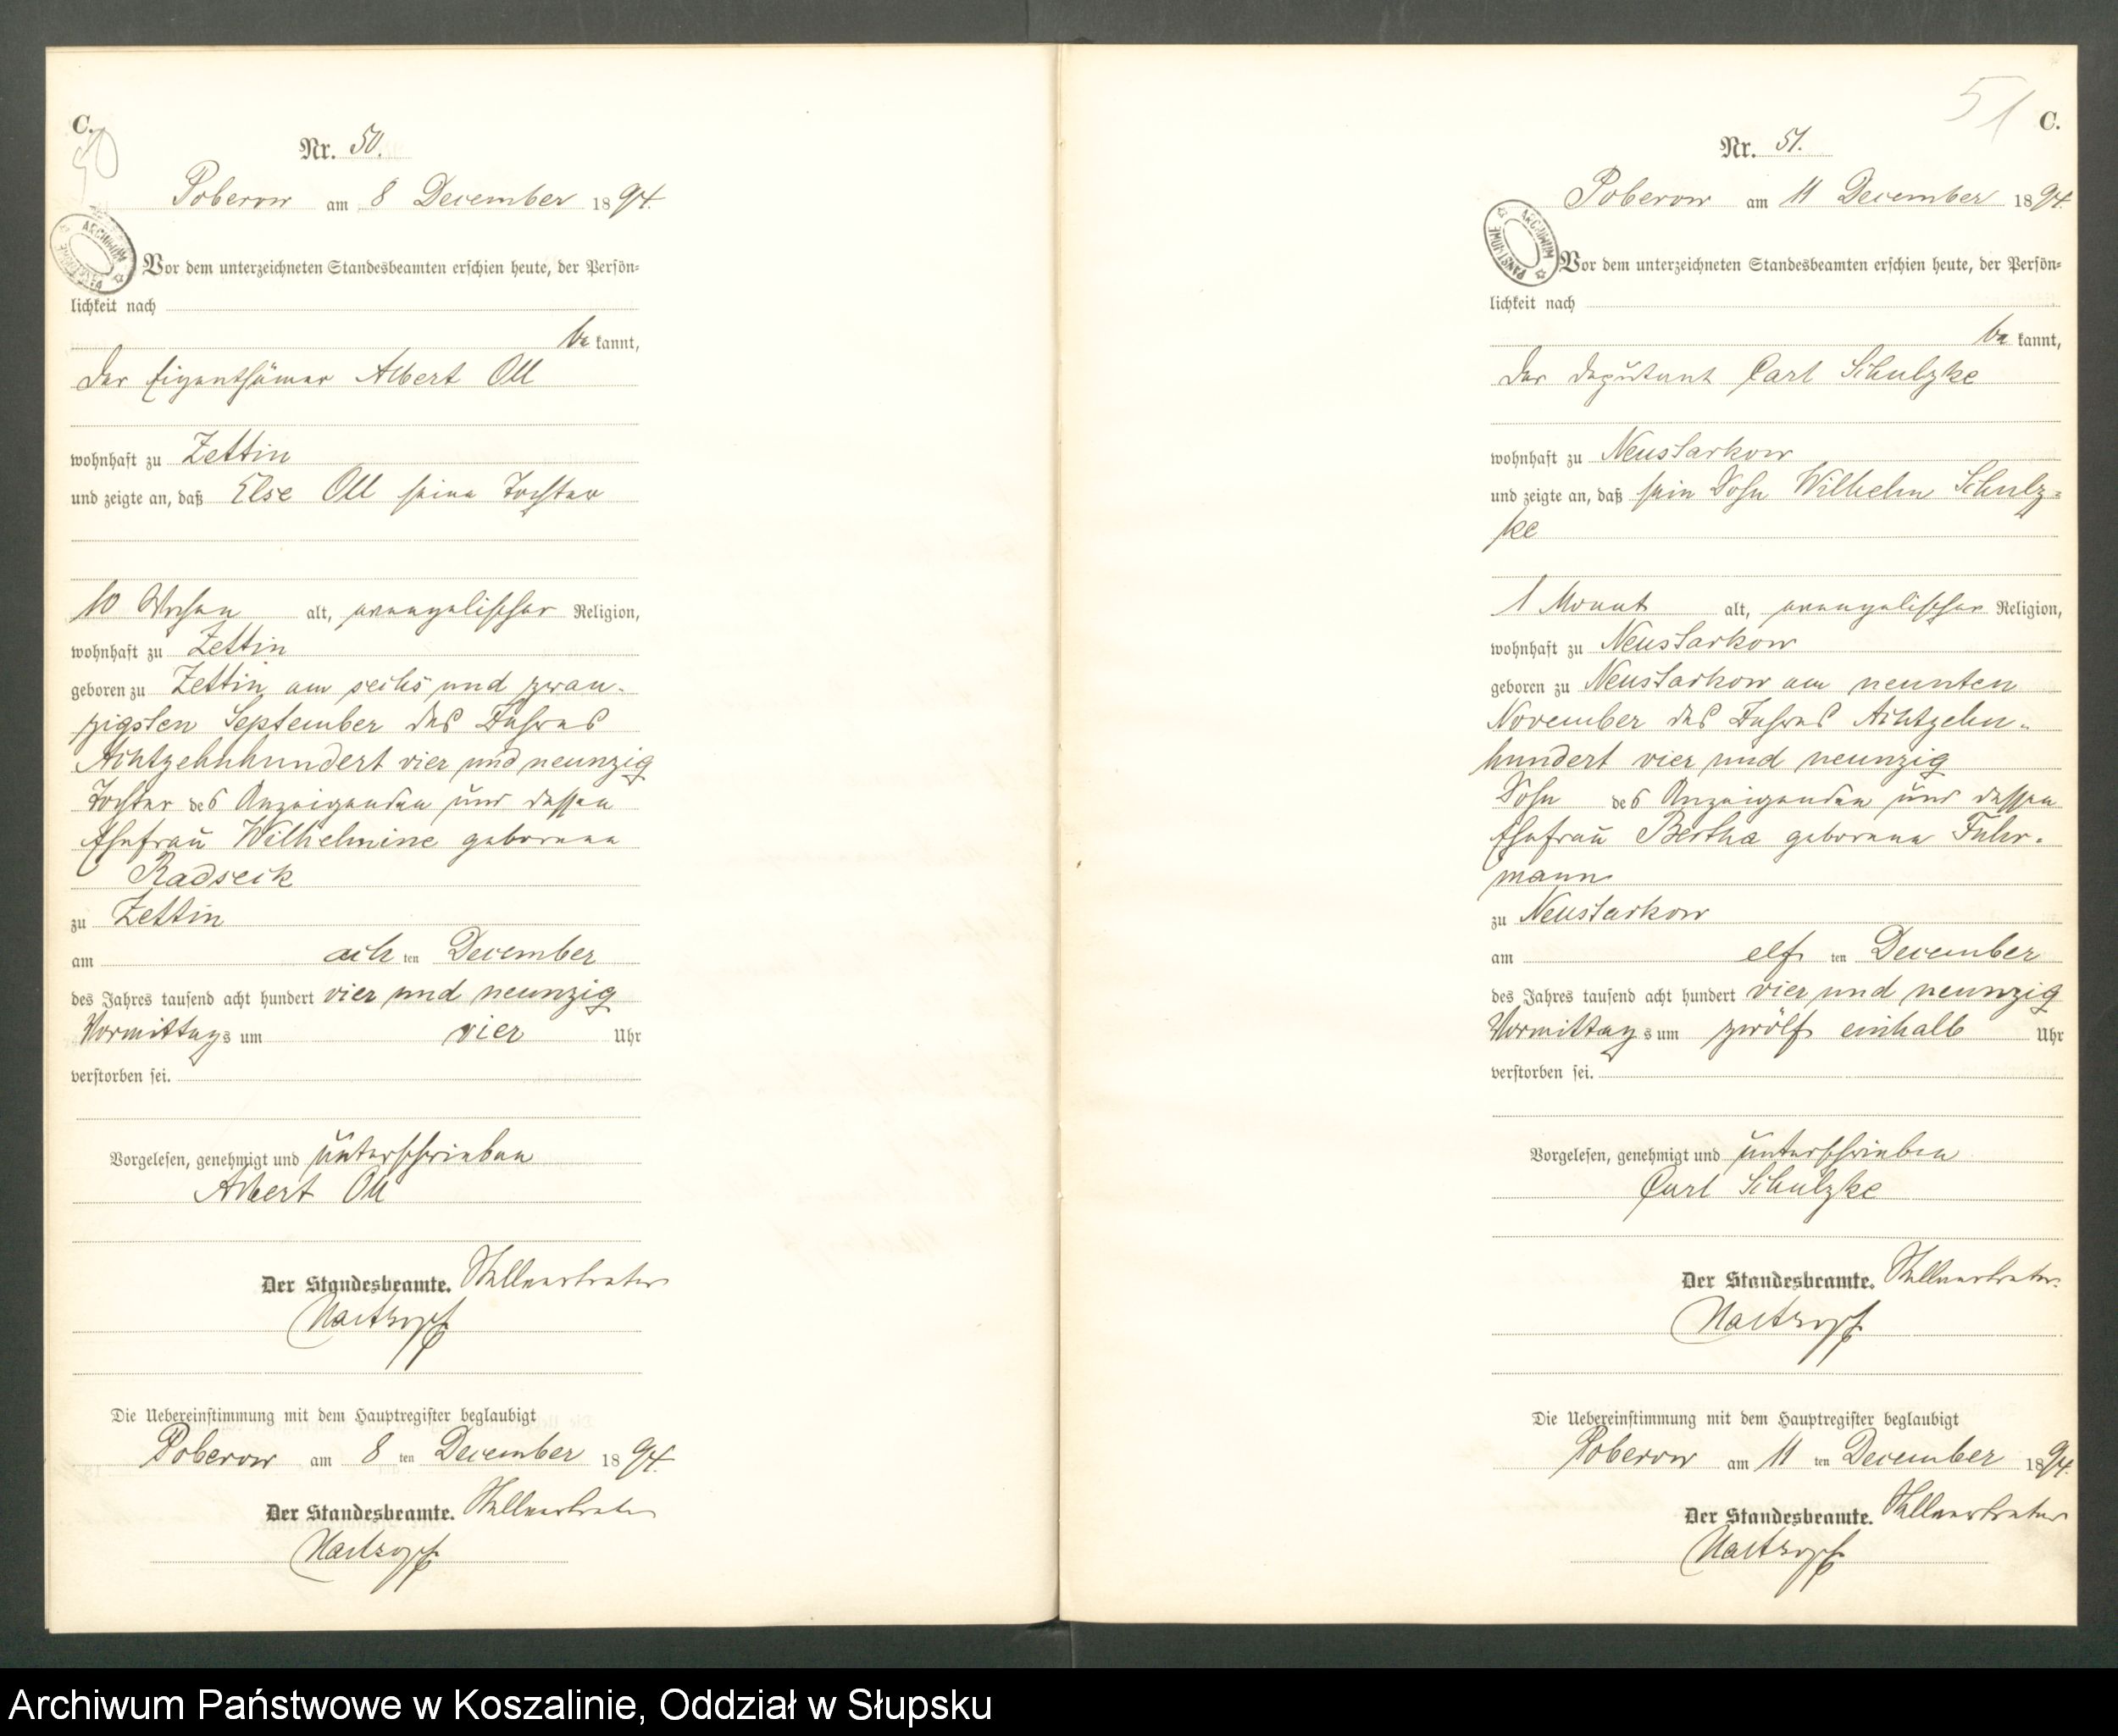 C.
50
Nr. 50.
Poberow am 8 December 1894.
ARCHIWUM PAŃSTWOWE
Vor dem unterzeichneten Standesbeamten erschien heute, der Persön=
lichkeit nach
be kannt,
der Eigenthümer Albert Oll
wohnhaft zu Zettin
und zeigte an, daß Else Oll seine Tochter
10 Wochen alt, evangelischer Religion,
wohnhaft zu Zettin
geboren zu Zettin am sechs und zwan-
zigsten September des Jahres
Achtzehnhundert vier und neunzig
Tochter des Anzeigenden und dessen
Ehefrau Wilhelmine geborene
Radseck
zu Zettin
am ach ten December
des Jahres tausend acht hundert vier und neunzig
Vormittags um vier Uhr
verstorben sei.
Vorgelesen, genehmigt und unterschrieben
Albert Oll
Der Standesbeamte. Stellvertreter
Die Uebereinstimmung mit dem Hauptregister beglaubigt
Poberow am 8 ten December 1894.
Der Standesbeamte. Stellvertreter
51
C.
Nr. 51.
Poberow am 11 December 1894.
ARCHIWUM PAŃSTWOWE
Vor dem unterzeichneten Standesbeamten erschien heute, der Persön=
lichkeit nach
be kannt,
der Deputant Carl Schulzke
wohnhaft zu Neustarkow
und zeigte an, daß sein Sohn Wilhelm Schulz=
ke
1 Monat alt, evangelischer Religion,
wohnhaft zu Neustarkow
geboren zu Neustarkow am neunten
November des Jahres Achtzehn-
hundert vier und neunzig
Sohn des Anzeigenden und dessen
Ehefrau Bertha geborene Fuhr-
mann
zu Neustarkow
am elf ten December
des Jahres tausend acht hundert vier und neunzig
Vormittags um zwölf einhalb Uhr
verstorben sei.
Vorgelesen, genehmigt und unterschrieben
Carl Schulzke
Der Standesbeamte. Stellvertreter.
Die Uebereinstimmung mit dem Hauptregister beglaubigt
Poberow am 11 ten December 1894.
Der Standesbeamte. Stellvertreter
Archiwum Państwowe w Koszalinie, Oddział w Słupsku